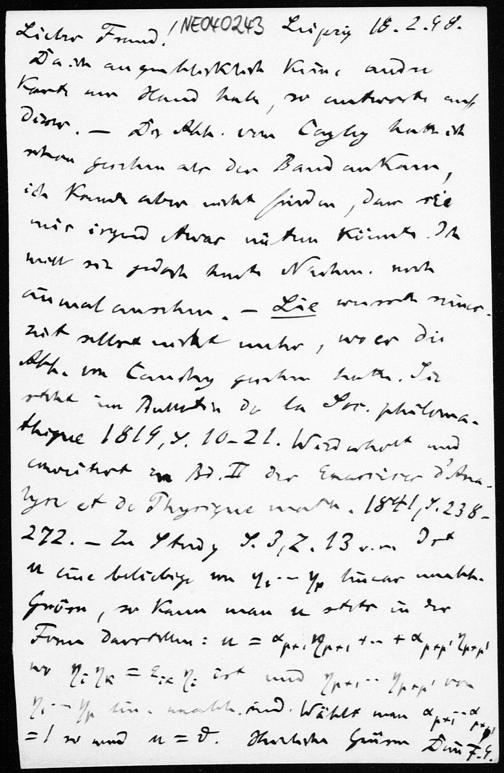 Lieber Freund! NE040243 Leipzig 18.2.98.
Da ich augenblicklich keine andre
Karte zur Hand habe, so antworte auf
dieser. — Die Abh. von Cayley hatte ich
schon gesehen als der Band ankam,
ich konnte aber nicht finden, dass sie
mir irgend etwas nützen könnte. Ich
will sie jedoch heute Nachm. noch
einmal ansehen. — Lie wusste seiner-
zeit selbst nicht mehr, wo er die
Abh. von Cauchy gesehen hatte. Sie
steht im Bulletin de la Soc. philoma-
thique 1819, S. 10-21. Wiederholt und
erweitert in Bd. II der Exercices d'Ana-
lyse et de Physique math. 1841, S. 238-
272. — Zu Study S. 3, Z. 13 v. u. Ist
u eine beliebige von η₁ ⋯ ηₚ linear unabh.
Grösse, so kann man u stets in der
Form darstellen: u = αₚ₊₁ ηₚ₊₁ + ⋯ + αₚ₊ₚ' ηₚ₊ₚ'
wo ηᵢ ηₖ = εᵢₖ ηᵢ ist und ηₚ₊₁ ⋯ ηₚ₊ₚ' von
η₁ ⋯ ηₚ lin. unabh. sind. Wählt man αₚ₊₁ ⋯ αₚ₊ₚ'
= 1 so wird u = ϑ. Herzliche Grüsse Dein F. E.